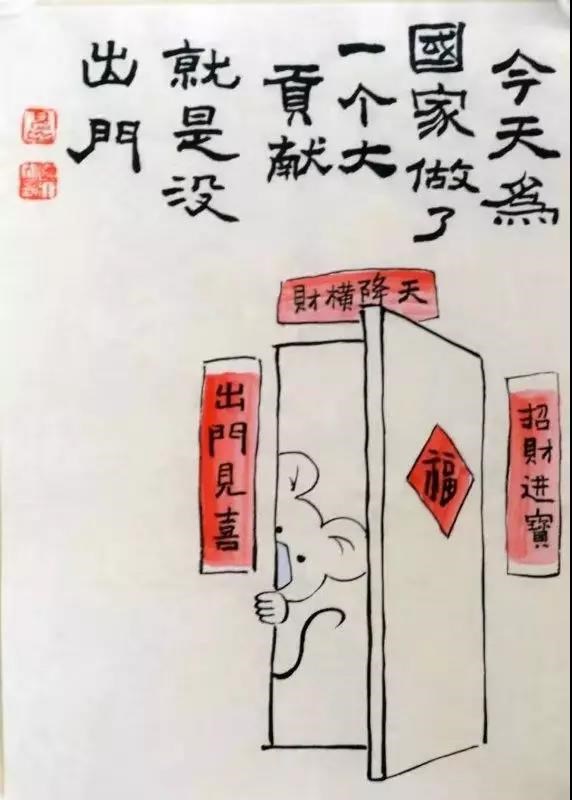 今天為
國家做了
一个大
貢献
就是没
出門
天降橫財
招財进寶
福
出門見喜